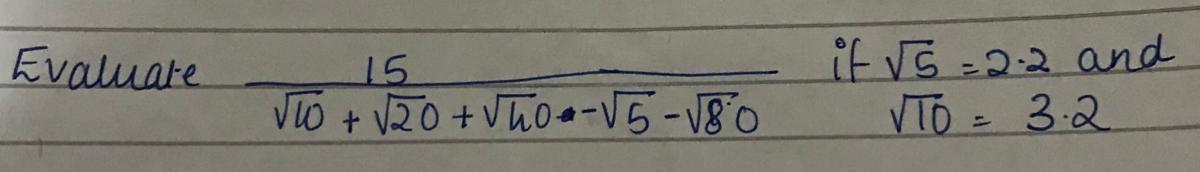 Evaluate 15 / (√10 + √20 + √40 - √5 - √80) if √5 = 2.2 and
√10 = 3.2